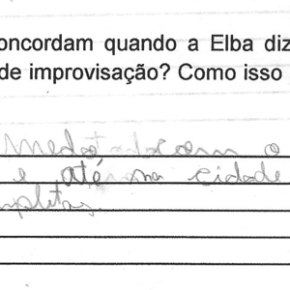 oncordam quando a Elba diz
de improvisação? Como isso
Medo com o
e até na cidade
mpletas.